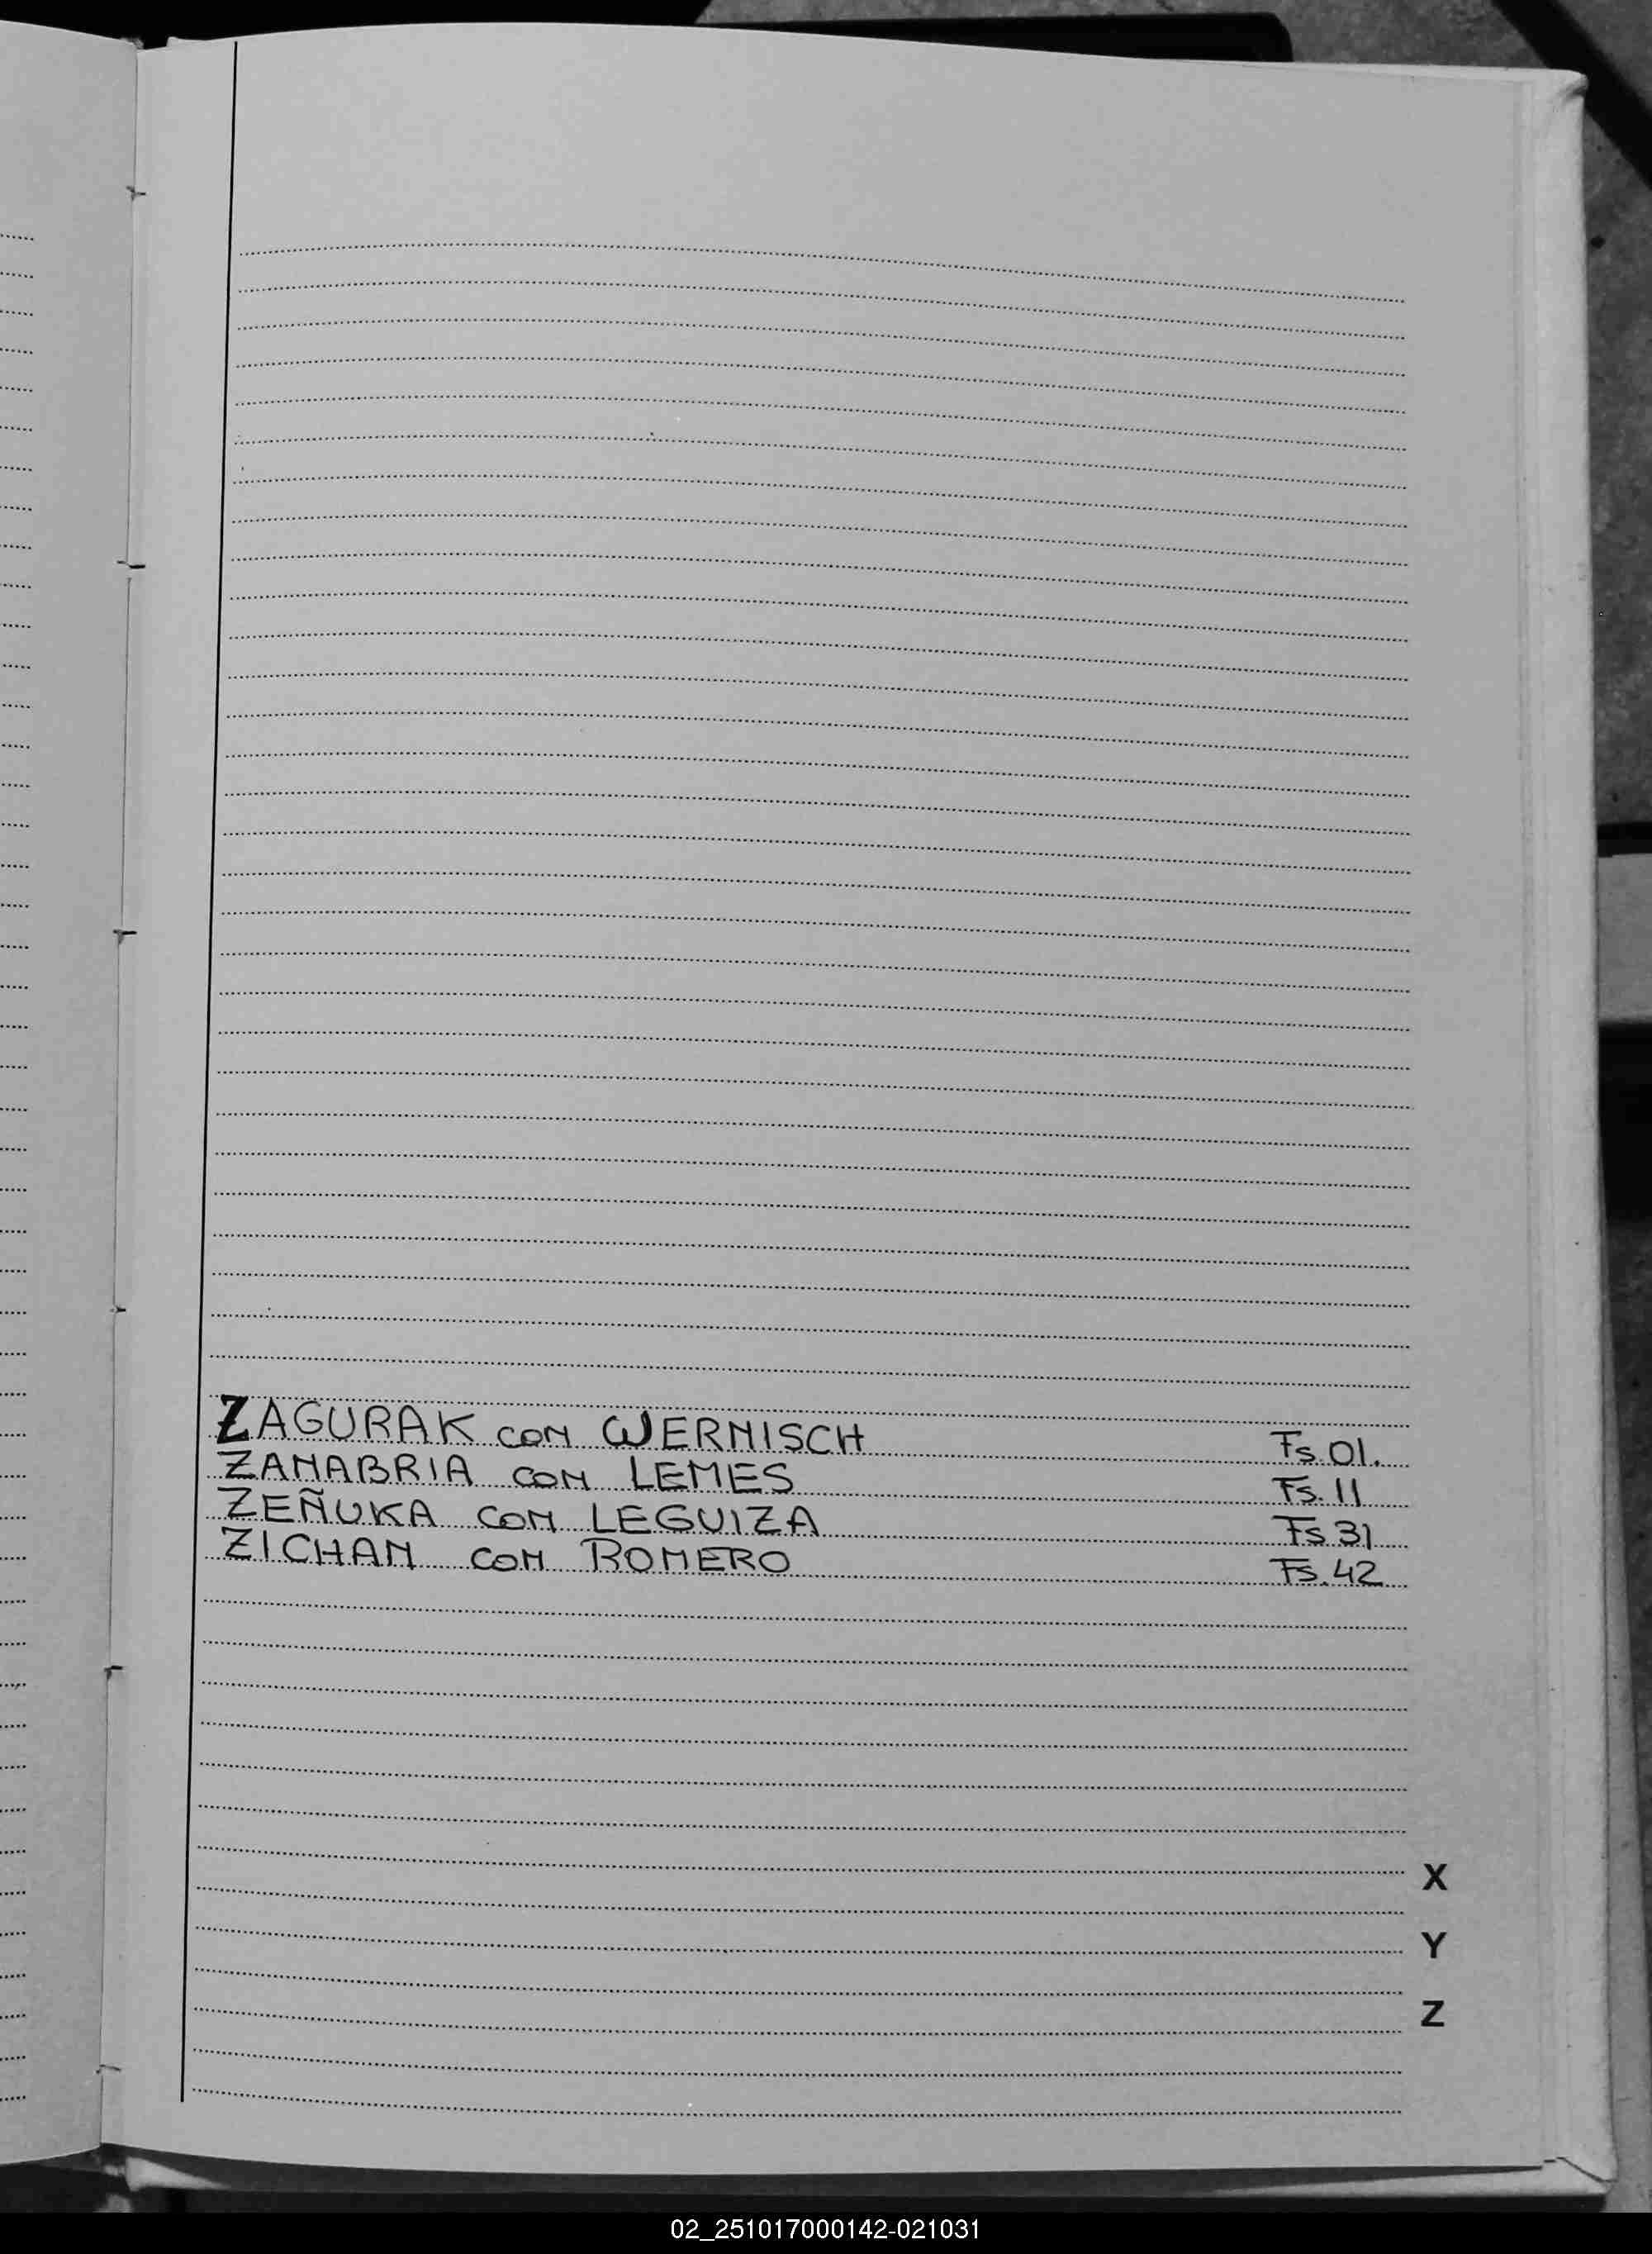 ZAGURAK CON WERNISCH Fs.01.
ZANABRIA CON LEMES Fs.11
ZEÑUKA CON LEGUIZA Fs 31
ZICHAN CON ROMERO Fs.42
X
Y
Z
02_251017000142-021031